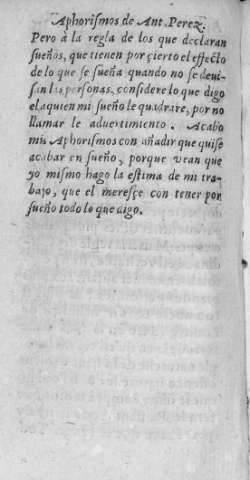 Aphorismos de Ant. Perez.
Pero à la regla de los que declaran
sueños, que tienen por çierto el effecto
de lo que se sueña quando no se devi-
san las personas, considere lo que digo
el aquien mi sueño le quadrare, por no
llamar le advertimiento. Acabo
mis Aphorismos con añadir que quise
acabar en sueño, porque vean que
yo mismo hago la estima de mi tra-
bajo, que el meresçe con tener por
sueño todo lo que digo.